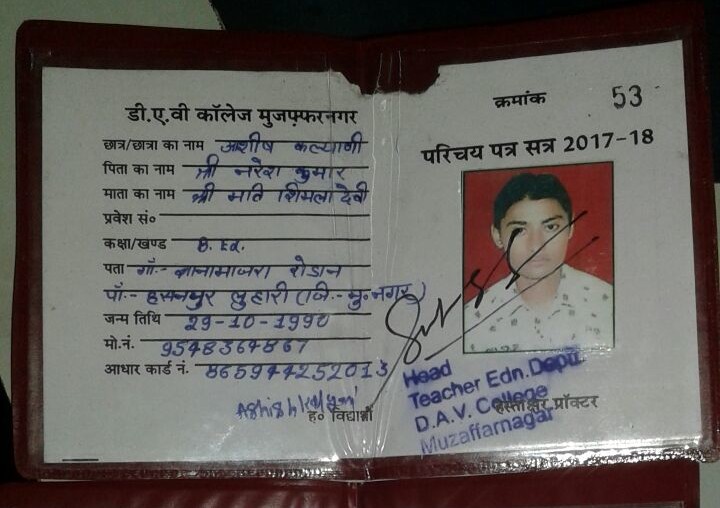 डी.ए.वी कॉलेज मुजफ्फरनगर
छात्र/छात्रा का नाम आशीष कल्याणी
पिता का नाम श्री नरेश कुमार
माता का नाम श्री मति शिमला देवी
प्रवेश सं०
कक्षा/खण्ड B. Ed.
पता गाँ:- रोडान
पो:- हसनपुर लुहारी (जि.- मु० नगर)
जन्म तिथि 29-10-1990
मो.नं. 9548364867
आधार कार्ड नं. 865944252013
ह० विद्यार्थी
क्रमांक 53
परिचय पत्र सत्र 2017-18
Head
Teacher Edn. Deptt.
D.A.V. College
Muzaffarnagar
हस्ताक्षर प्रॉक्टर